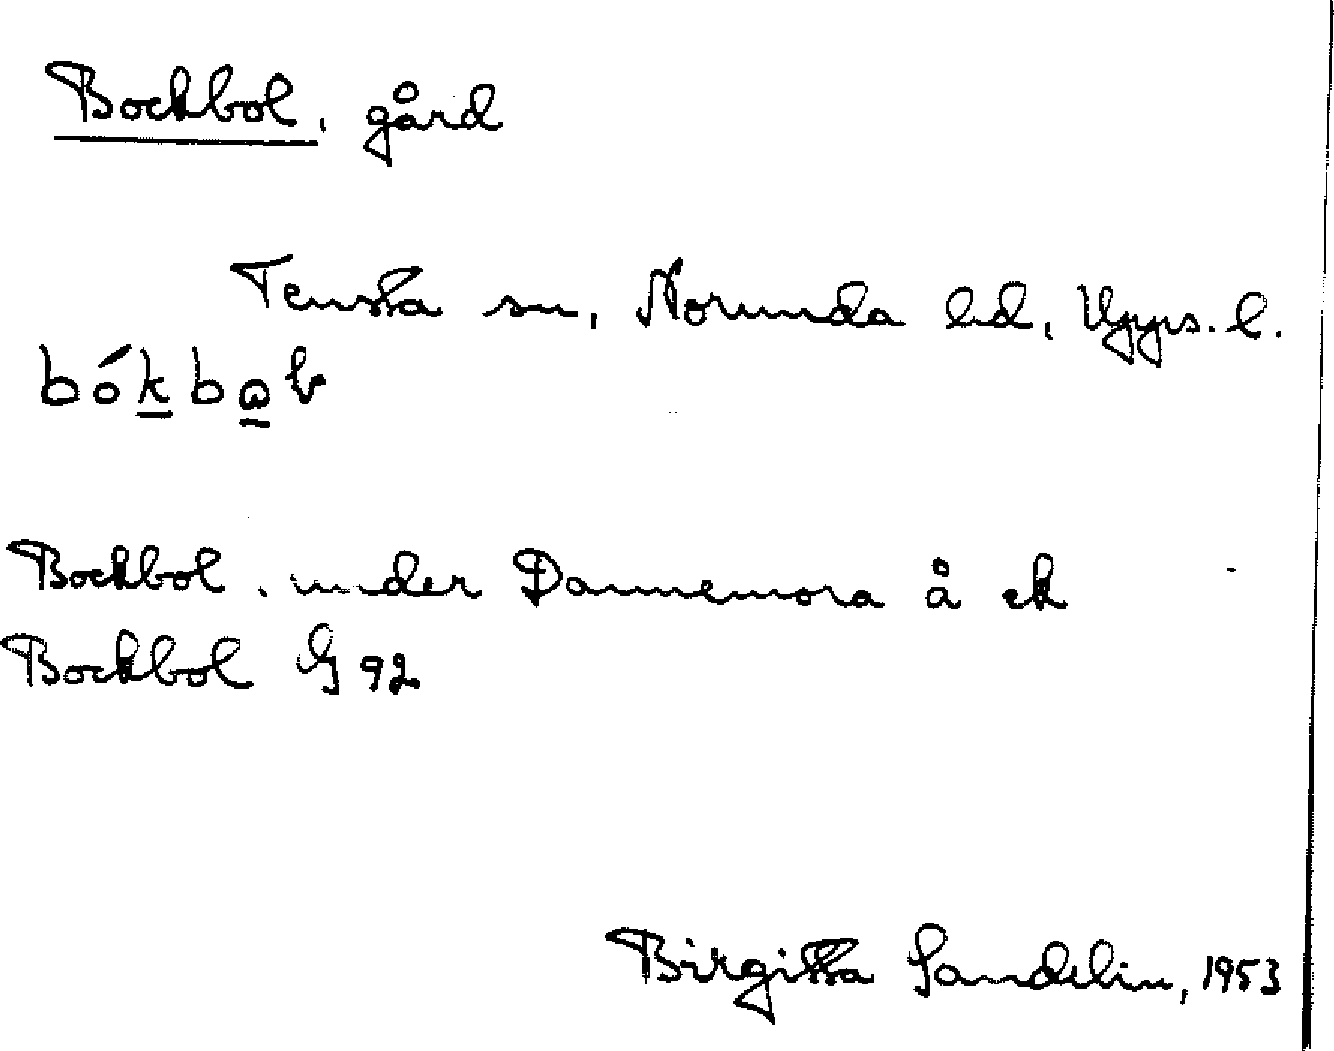 Bockbol, gård
Tensta sn, Norunda hd, Upps. l.
Bockbol, under Dannemora å ek
Bockbol G 92
Birgitta Sandelin, 1953